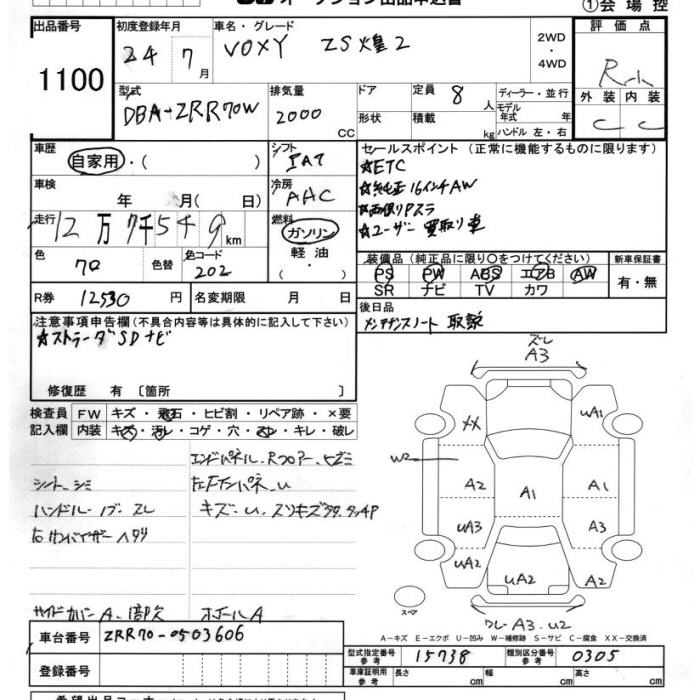 ①会場控
出品番号
1100
初度登録年月
24 7月
車名・グレード
VOXY ZS煌2
2WD
・
4WD
評価点
外装 内装
C C
型式
DBA-ZRR70W
排気量
2000 CC
ドア
形状
定員 8 人
積載 kg
ディーラー・並行
モデル年式 年
ハンドル 左・右
車歴
自家用・( )
シフト
冷房
AAC
車検
年 月( 日)
走行
12万7千549km
燃料
ガソリン
軽油
・( )
色
クロ
色替
色コード
202
R券 12530 円
名変期限 月 日
セールスポイント (正常に機能するものに限ります)
☆ETC
☆純正16インチAW
☆両側Pスラ
☆ユーザー買取り車
装備品 (純正品に限り○をつけてください)
PS PW ABS エアB AW
SR ナビ TV カワ
新車保証書
有・無
後日品
メンテナンスノート 取説
注意事項申告欄 (不具合内容等は具体的に記入して下さい)
☆ストラーダSDナビ
修復歴 有 〔箇所 〕
検査員記入欄
FW キズ・飛石・ヒビ割・リペア跡・×要
内装 キズ・汚れ・コゲ・穴・スレ・キレ・破レ
エンドパネル、Rフロアーヒズミ
シート、シミ
ハンドル・ノブ・スレ
キズ・U、スリキズ
右サンバイザー
サイドカバーA
ホイールA
ズレ
A3
XX
UA1
W2
A2
A1
A1
UA3
A3
UA2
UA2
A2
スペア
A3・U2
A−キズ E−エクボ U−凹み W−補修跡 S−サビ C−腐食 XX−交換済
車台番号 ZRR70-0503606
登録番号
型式指定番号 参考 15738
類別区分番号 参考 0305
車庫証明用 参考 長さ cm 幅 cm 高さ cm